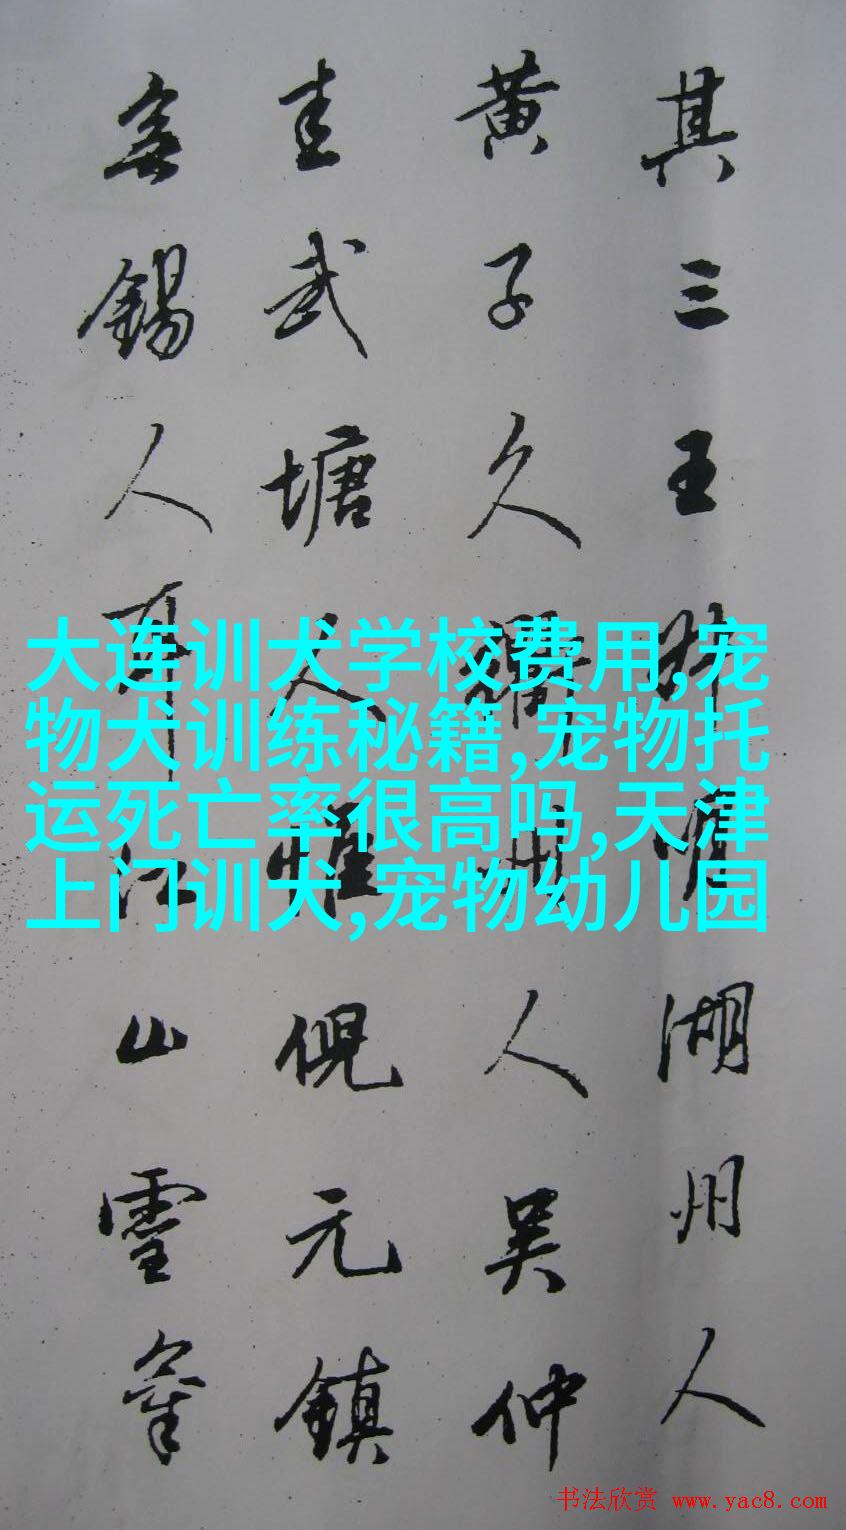 其三王叔明湖州人
黄子久衢州人吴仲
圭武塘人惟倪元鎮
無錫人耳江山靈氣
大连训犬学校费用,宠
物犬训练秘籍,宠物托
运死亡率很高吗,天津
上门训犬,宠物幼儿园
书法欣赏 www.yac8.com